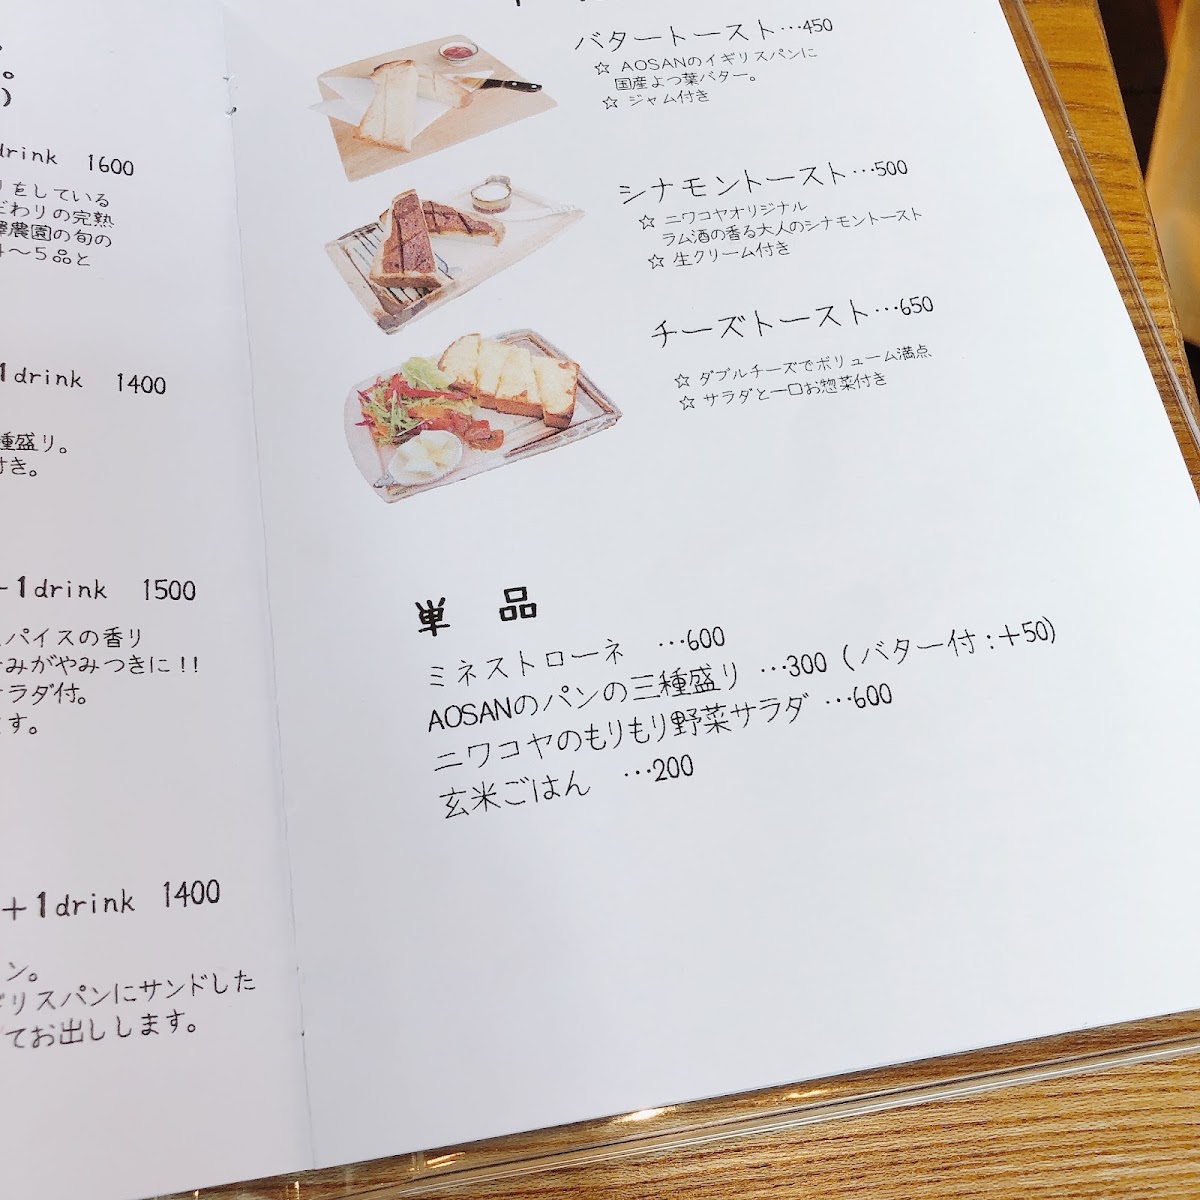 drink 1600
をしている
わりの完熟
農園の旬の
4〜5品と
1drink 1400
種盛り。
付き。
1drink 1500
スパイスの香り
みがやみつきに!!
サラダ付。
ます。
+1drink 1400
ン。
ギリスパンにサンドした
てお出しします。
バタートースト…450
☆ AOSANのイギリスパンに
国産よつ葉バター。
☆ ジャム付き
シナモントースト…500
☆ ニワコヤオリジナル
ラム酒の香る大人のシナモントースト
☆ 生クリーム付き
チーズトースト…650
☆ ダブルチーズでボリューム満点
☆ サラダと一口お惣菜付き
単 品
ミネストローネ …600
AOSANのパンの三種盛り …300 (バター付:+50)
ニワコヤのもりもり野菜サラダ …600
玄米ごはん …200